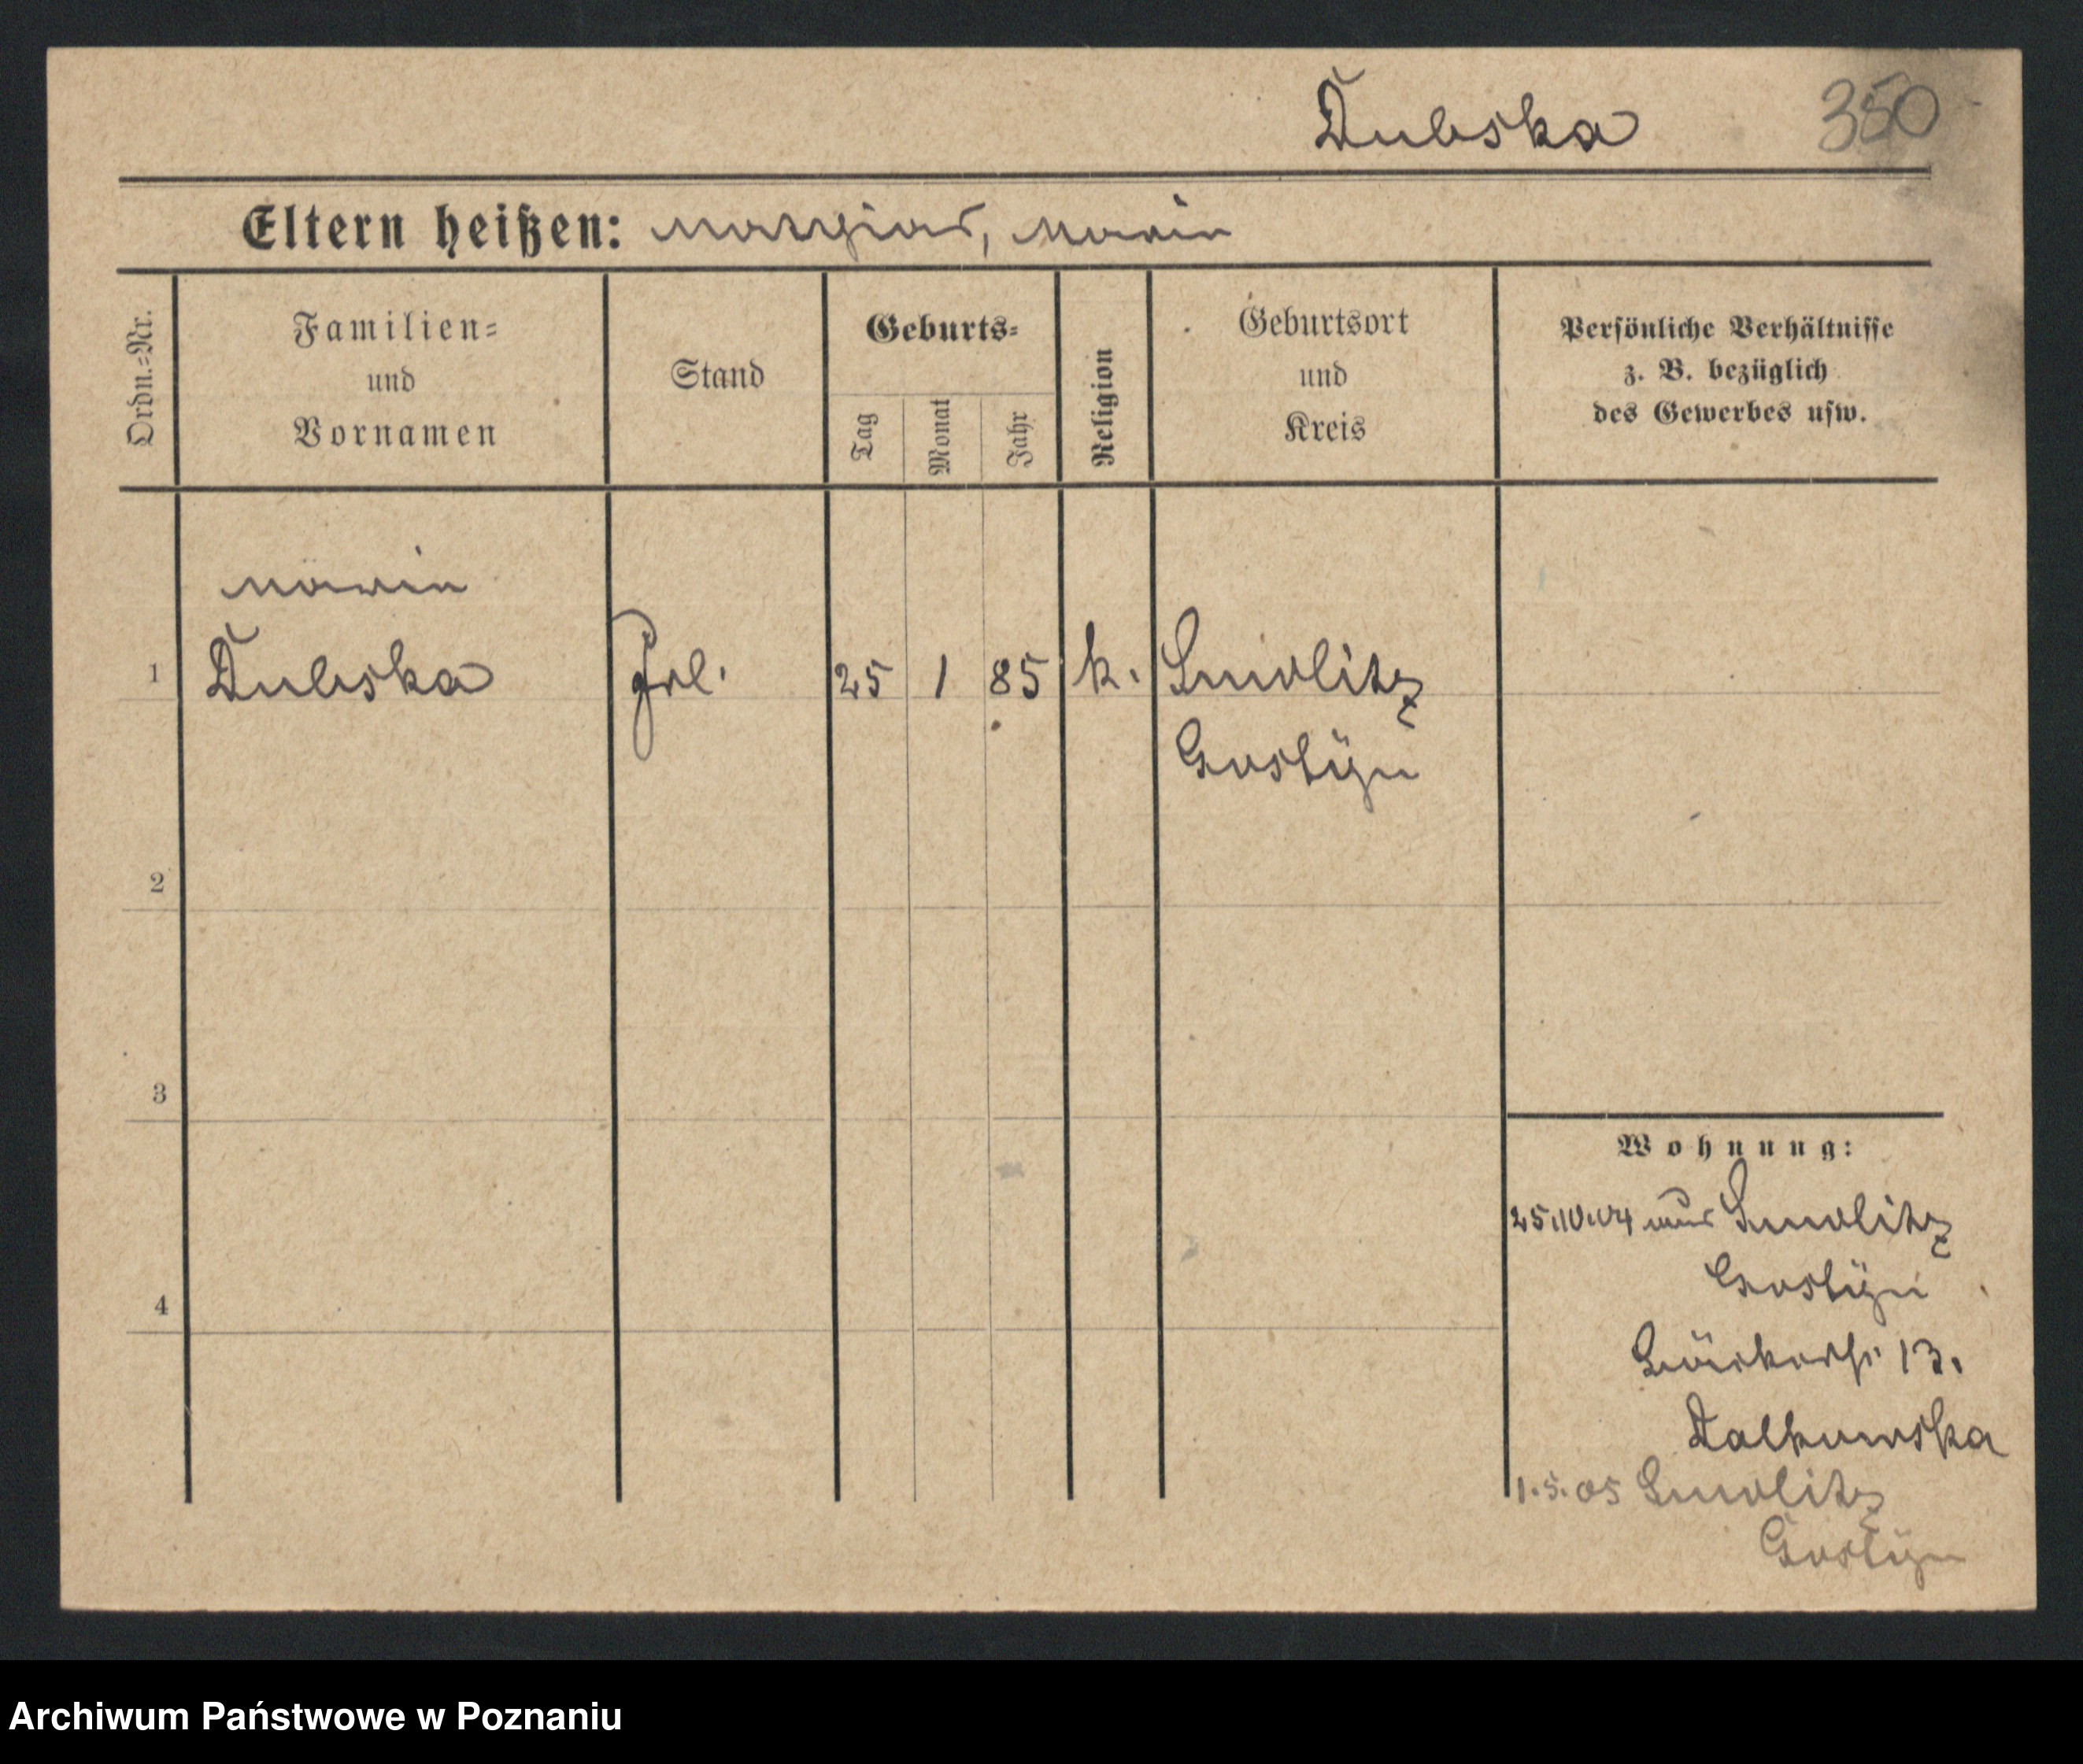 Dubska 350
Eltern heißen: Mathias, Marie
Ordn.-Nr.
Familien-
und
Vornamen
Stand
Geburts-
Tag
Monat
Jahr
Religion
Geburtsort
und
Kreis
Persönliche Verhältnisse
z. B. bezüglich
des Gewerbes usw.
Marie
1 Dubska Frl. 25 1 85 k. Smolitz
Gostyn
2
3
4
Wohnung:
25.10.04 aus Smolitz
Gostyn
13.
1.5.05 Smolitz
Gostyn
Archiwum Państwowe w Poznaniu